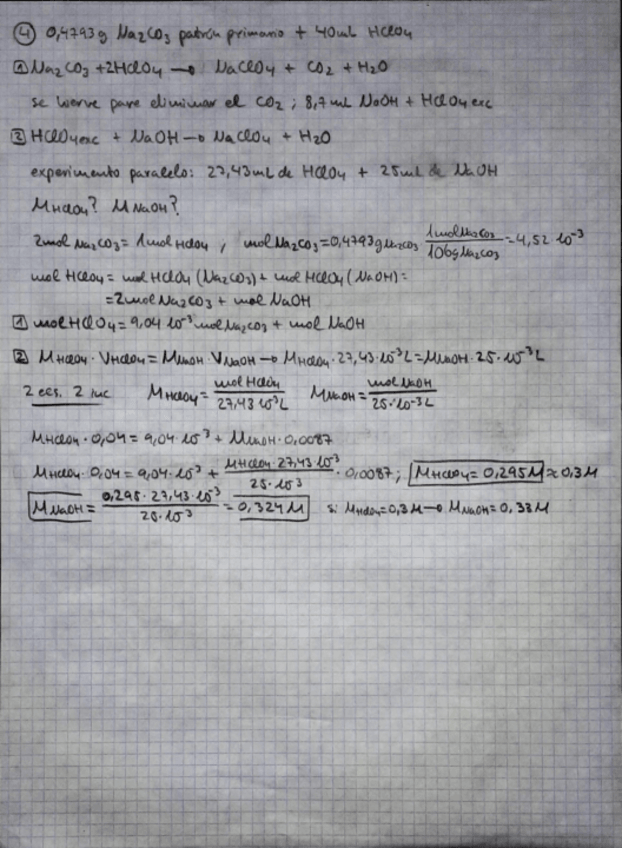 ④ 0,4793g Na2CO3 patrón primario + 40mL HClO4
1 Na2CO3 + 2HClO4 → NaClO4 + CO2 + H2O
se hierve para eliminar el CO2 ; 8,7mL NaOH + HClO4 exc
2 HClO4 exc + NaOH → NaClO4 + H2O
experimento paralelo: 27,43mL de HClO4 + 25mL de NaOH
MHClO4? MNaOH?
2mol Na2CO3 = 1mol HClO4 , mol Na2CO3 = 0,4793g Na2CO3 1mol Na2CO3 / 106g Na2CO3 = 4,52 10⁻³
mol HClO4 = mol HClO4 (Na2CO3) + mol HClO4 (NaOH) =
= 2mol Na2CO3 + mol NaOH
1 mol HClO4 = 9,04 10⁻³ mol Na2CO3 + mol NaOH
2 MHClO4 · VHClO4 = MNaOH · VNaOH → MHClO4 · 27,43·10⁻³L = MNaOH · 25·10⁻³L
2 ecs. 2 inc MHClO4 = mol HClO4 / 27,43 10⁻³L MNaOH = mol NaOH / 25·10⁻³L
MHClO4 · 0,04 = 9,04·10⁻³ + MNaOH · 0,0087
MHClO4 · 0,04 = 9,04·10⁻³ + MHClO4 · 27,43·10⁻³ / 25·10⁻³ · 0,0087 ; MHClO4 = 0,295M ≈ 0,3M
MNaOH = 0,295 · 27,43·10⁻³ / 25·10⁻³ = 0,324M si MHClO4 = 0,3M → MNaOH = 0,33M